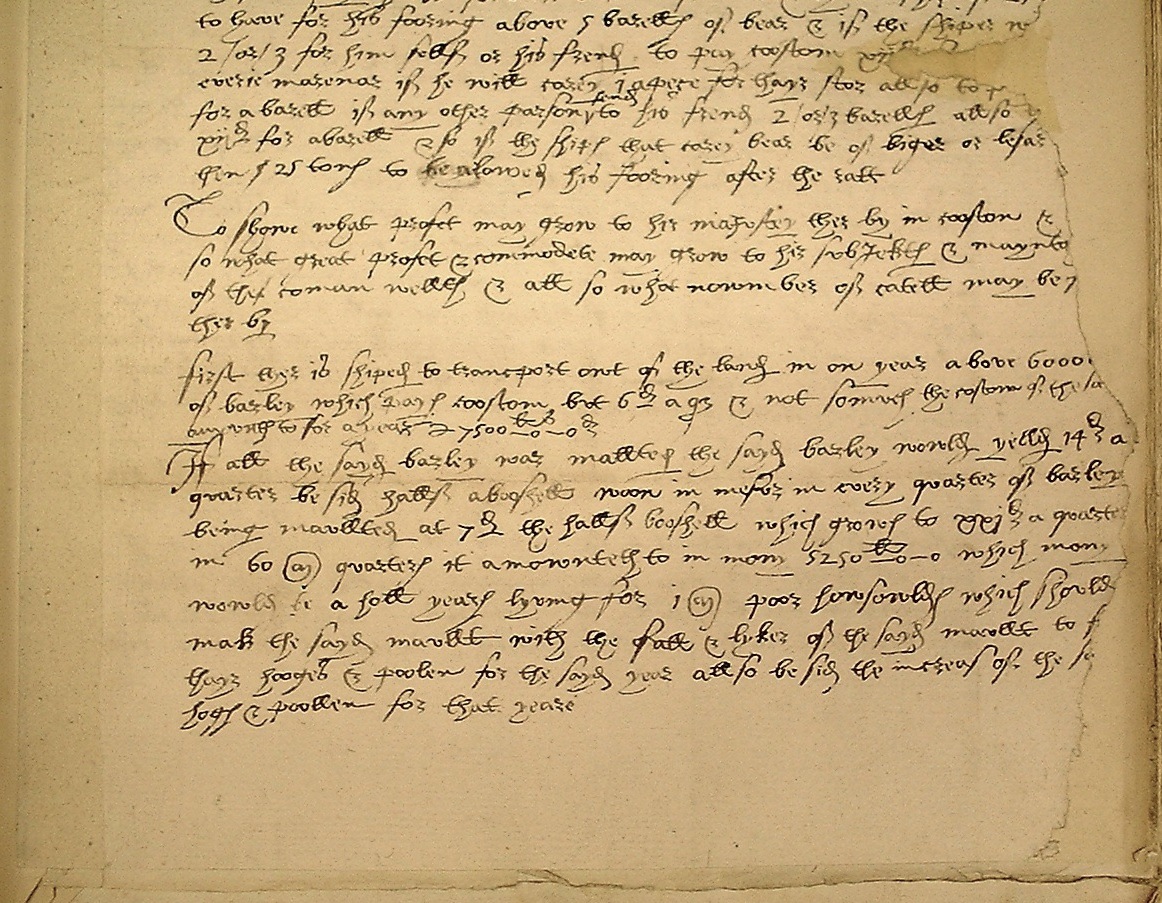 to have for his foozing above 5 barells of bear & if the shiper
2 /or/ 3 for him self or his frend to pay coostom
everie marenar if he will carey 1 apece for thayr stor allso to
for a barell if any other parson send to his frend 2 /or/3 barells allso
xijd for a barell & so if the ships that carey bear be of biger or lesar
then 125 tons to be alowed his foozing after the ratt
To showe what profet may grow to hir majestey ther by in coostom &
so what great profet & commodete may grow to hir subjekts & maynt
of the coman wellth & all so what nownber of catell may be
ther by
first ther is shiped to transport out of the land in on year above 6000
of barley which pays coostom but 6d a qr & not so much the costom of the sa
amownth to for a year 27500li-0-0d
If all the sayd barley war mallted the sayd barley wowld yelld 14d a
quarter be sid hallf a booshell woon in mesor in every quarter of barley
being maullted at 7d the hallf booshell which grows to xxjd a quarter
in 60 (M) quarters it amownteth to in mony 5250li-0-0 which mony
wowld be a holl years lyving for 1 (M) poor howsowlds which showld
mak the sayd maullt with the fall & lyker of the sayd maullt to f
thayr hooges & poolen for the sayd year allso be sid the increas of the sa
hogs & poollen for that yeare